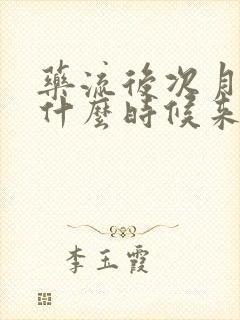 藥流後次月
什麼時候來
李玉霞